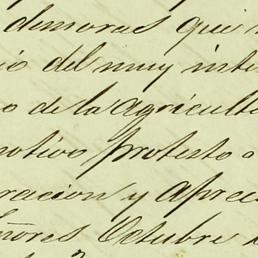 demoras que
io del muy inte
o de la agricult
motivo protesto a
racion y aprec
eñores Octubre